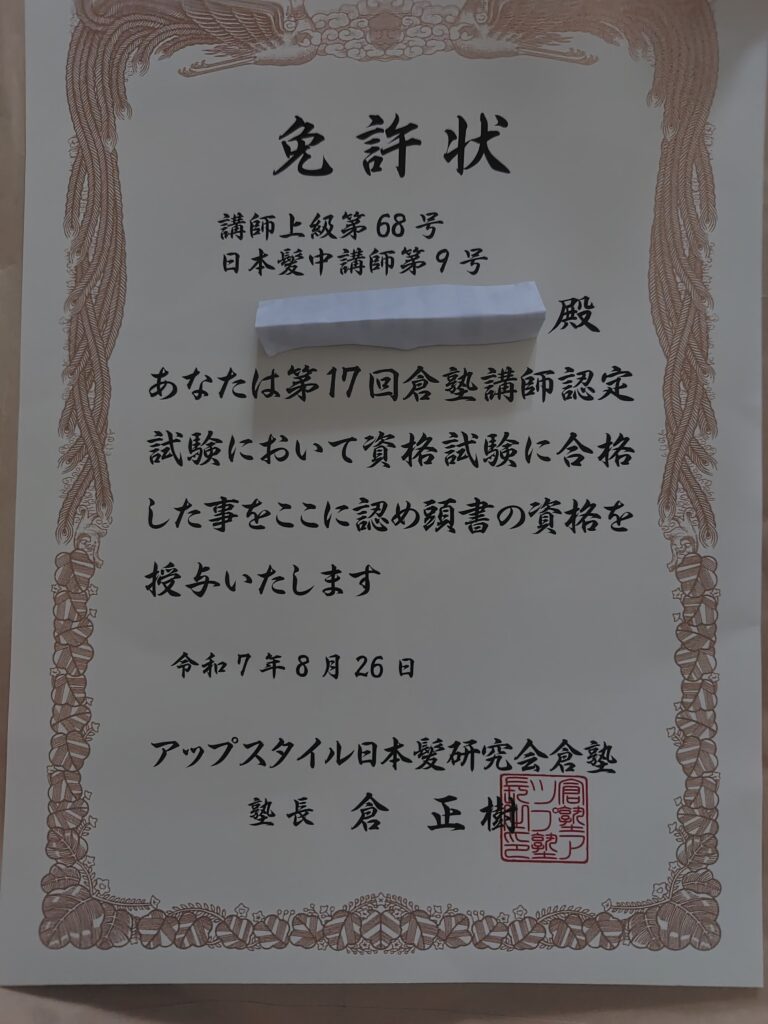 免許状
講師上級第68号
日本髪中講師第9号
殿
あなたは第17回倉塾講師認定
試験において資格試験に合格
した事をここに認め頭書の資格を
授与いたします
令和7年8月26日
アップスタイル日本髪研究会倉塾
塾長 倉 正樹